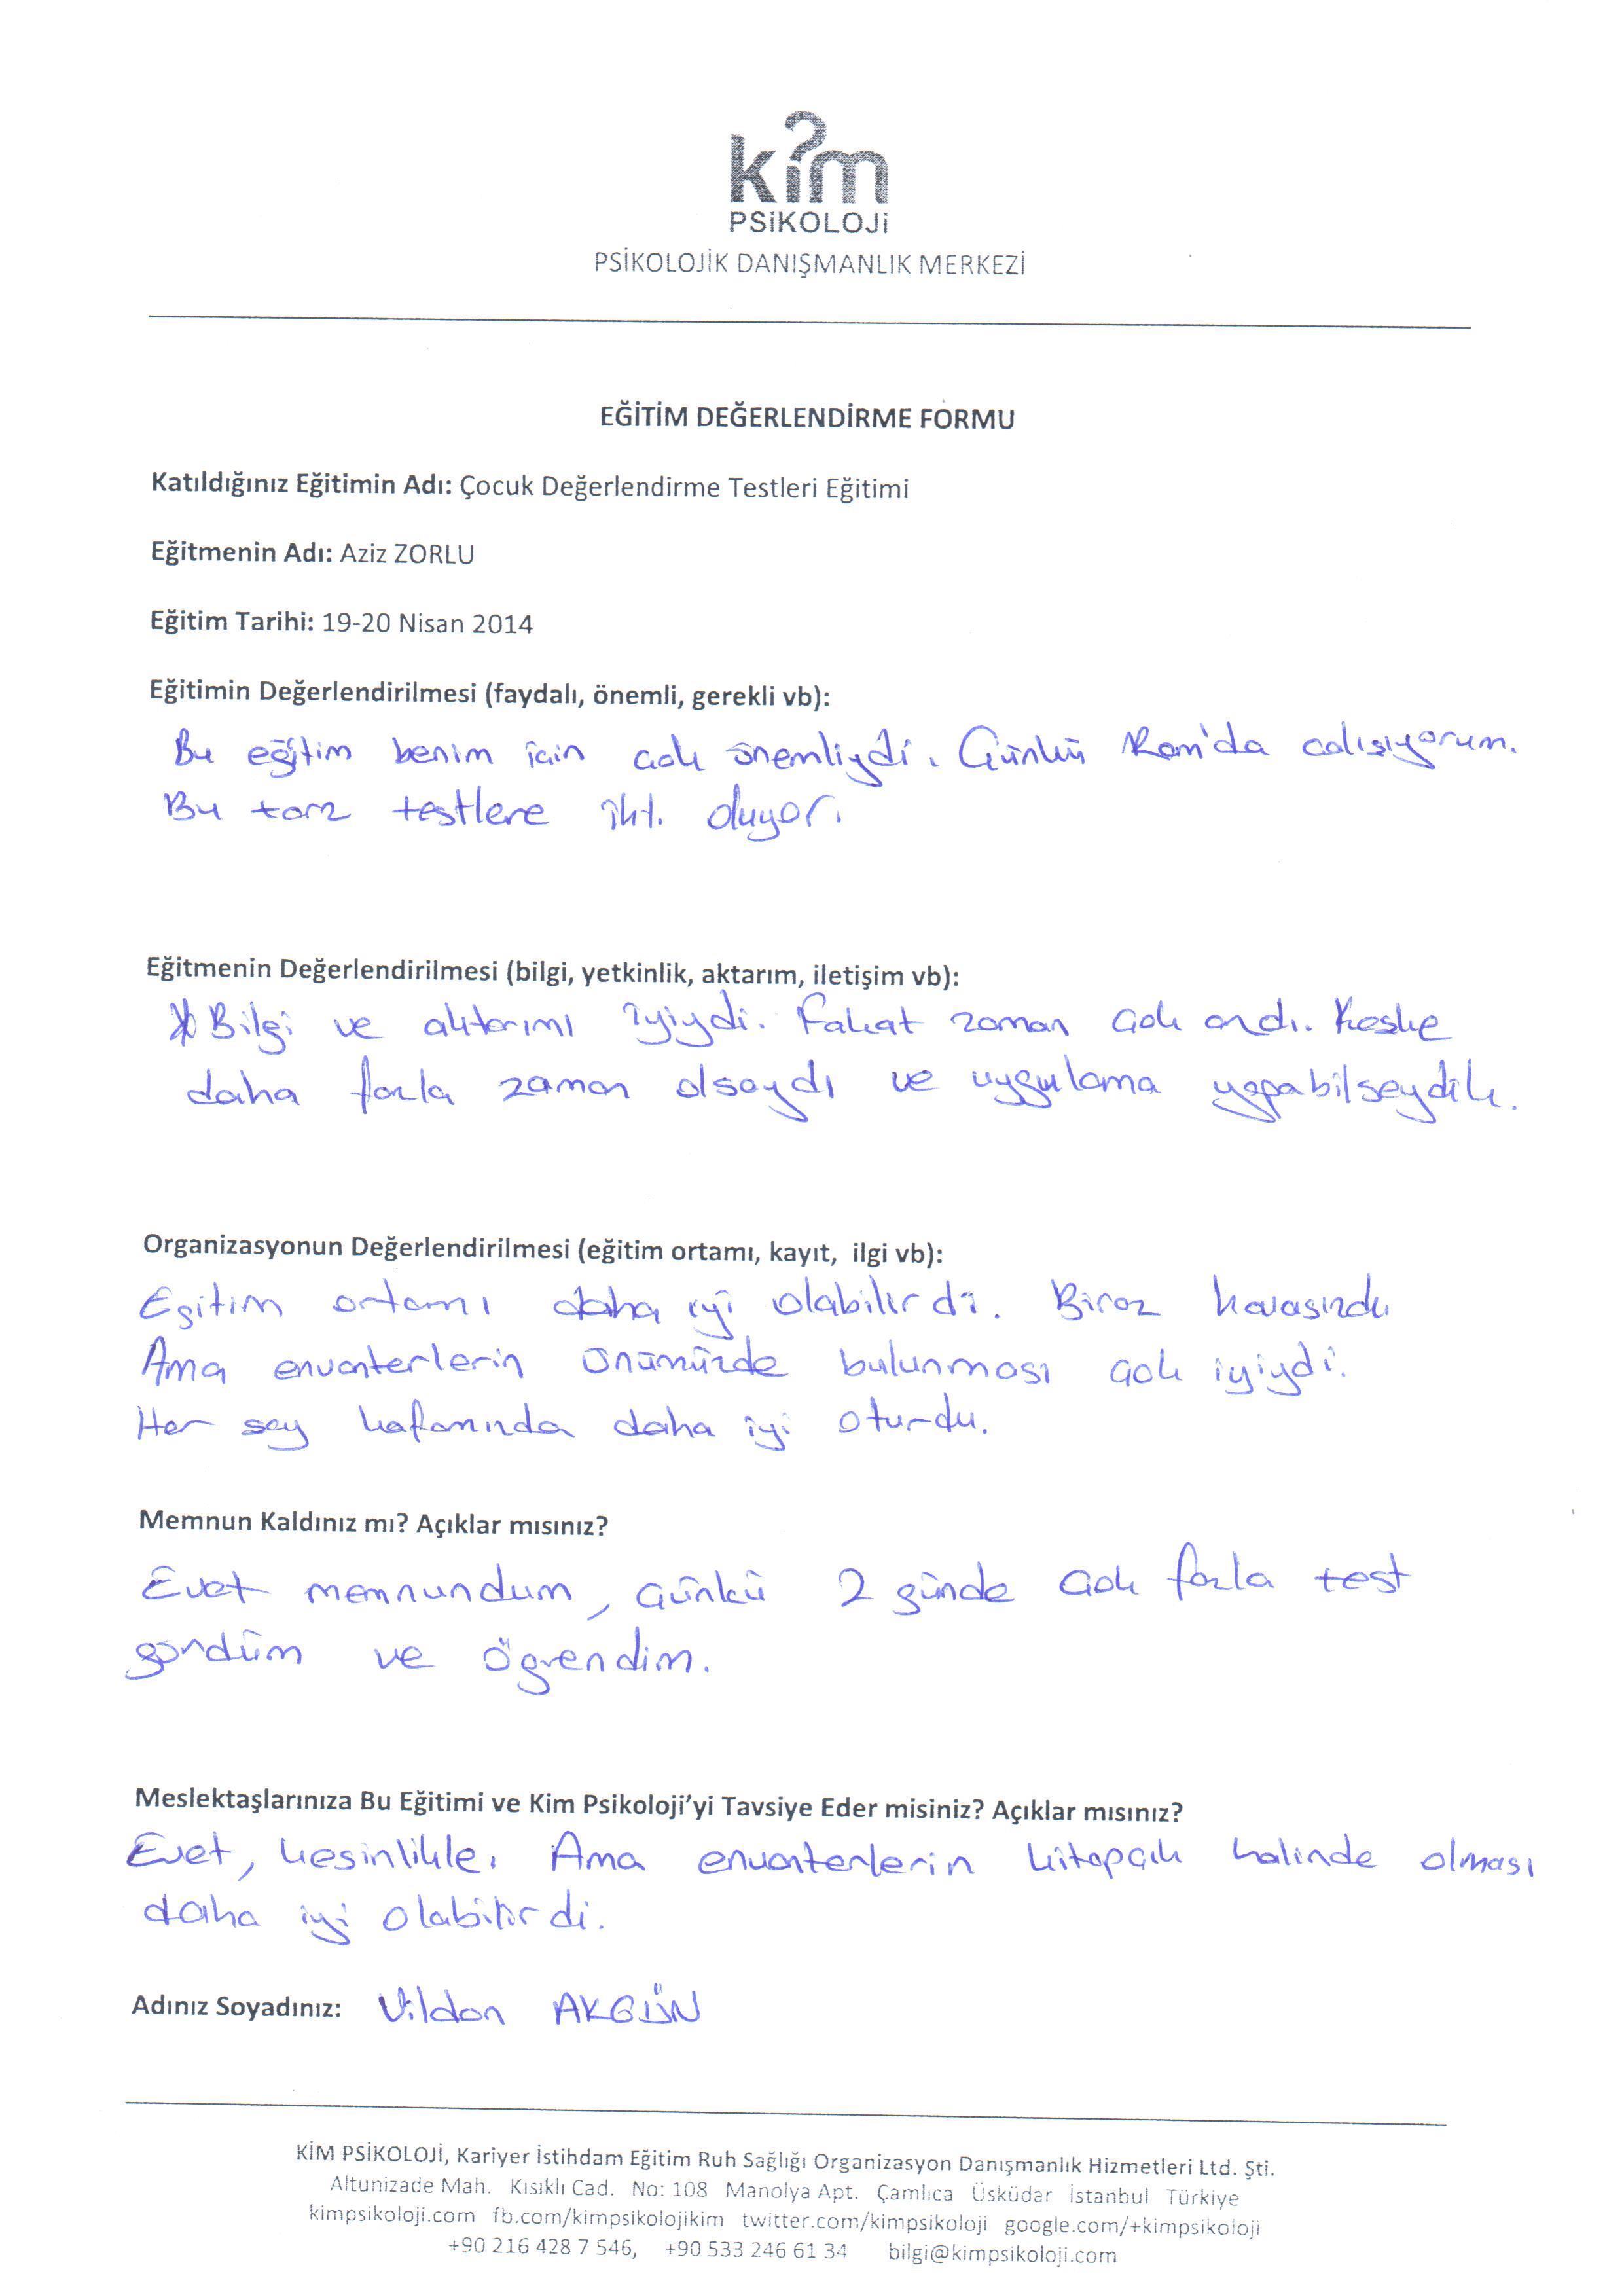 kim
PSiKOLOJi
PSİKOLOJİK DANIŞMANLIK MERKEZİ
EĞİTİM DEĞERLENDİRME FORMU
Katıldığınız Eğitimin Adı: Çocuk Değerlendirme Testleri Eğitimi
Eğitmenin Adı: Aziz ZORLU
Eğitim Tarihi: 19-20 Nisan 2014
Eğitimin Değerlendirilmesi (faydalı, önemli, gerekli vb):
Bu eğitim benim için çok önemliydi. Çünkü Ram'da calısıyorum.
Bu tarz testlere iht. oluyor.
Eğitmenin Değerlendirilmesi (bilgi, yetkinlik, aktarım, iletişim vb):
Bilgi ve aktarımı iyiydi. Fakat zaman çok azdı. Keske
daha fazla zaman olsaydı ve uygulama yapabilseydik.
Organizasyonun Değerlendirilmesi (eğitim ortamı, kayıt, ilgi vb):
Egitim ortamı daha iyi olabilirdi. Biraz havasızdı
Ama envanterlerin önümüzde bulunması çok iyiydi.
Her sey kafamızda daha iyi oturdu.
Memnun Kaldınız mı? Açıklar mısınız?
Evet memnundum, çünkü 2 günde çok fazla test
gördüm ve öğrendim.
Meslektaşlarınıza Bu Eğitimi ve Kim Psikoloji'yi Tavsiye Eder misiniz? Açıklar mısınız?
Evet, kesinlikle. Ama envanterlerin kitapçık halinde olması
daha iyi olabilirdi.
Adınız Soyadınız: Vildan AKGÜN
KİM PSİKOLOJİ, Kariyer İstihdam Eğitim Ruh Sağlığı Organizasyon Danışmanlık Hizmetleri Ltd. Şti.
Altunizade Mah. Kısıklı Cad. No: 108 Manolya Apt. Çamlıca Üsküdar İstanbul Türkiye
kimpsikoloji.com fb.com/kimpsikolojikim twitter.com/kimpsikoloji google.com/+kimpsikoloji
+90 216 428 7 546, +90 533 246 61 34 bilgi@kimpsikoloji.com